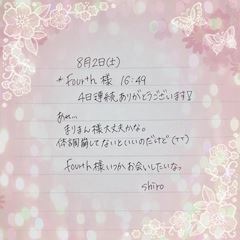 8月2日(土)
*fourth 様 16:49
4日連続ありがとうございます!
あぁ...
まりまん様大丈夫かな。
体調崩してないといいのだけど(TT)
fourth 様いつかお会いしたいなっ
shiro